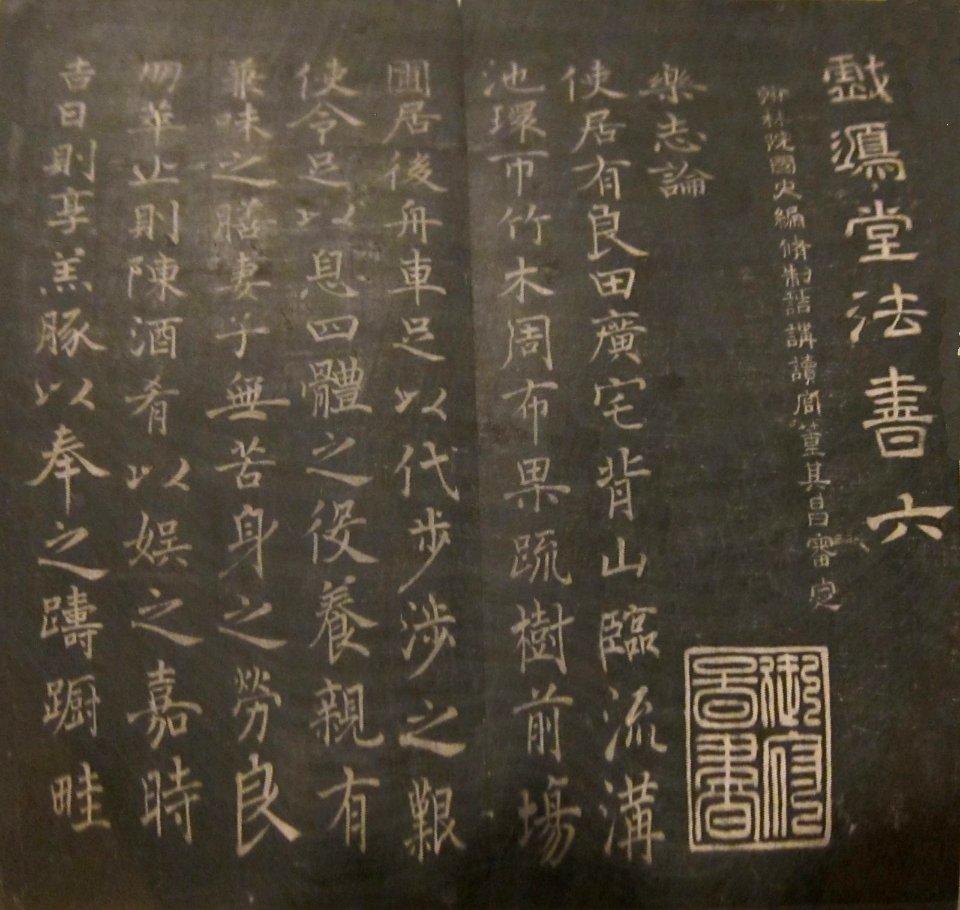 戲鴻堂法書六
翰林院國史編脩制誥講讀官董其昌審定
御府
啚書
樂志論
使居有良田廣宅背山臨流溝
池環帀竹木周布果疏樹前場
圃居後舟車足以代步涉之艱
使令足以息四體之役養親有
兼味之膳妻子無苦身之勞良
朋萃止則陳酒肴以娱之嘉時
吉日則享羔豚以奉之躊躕畦